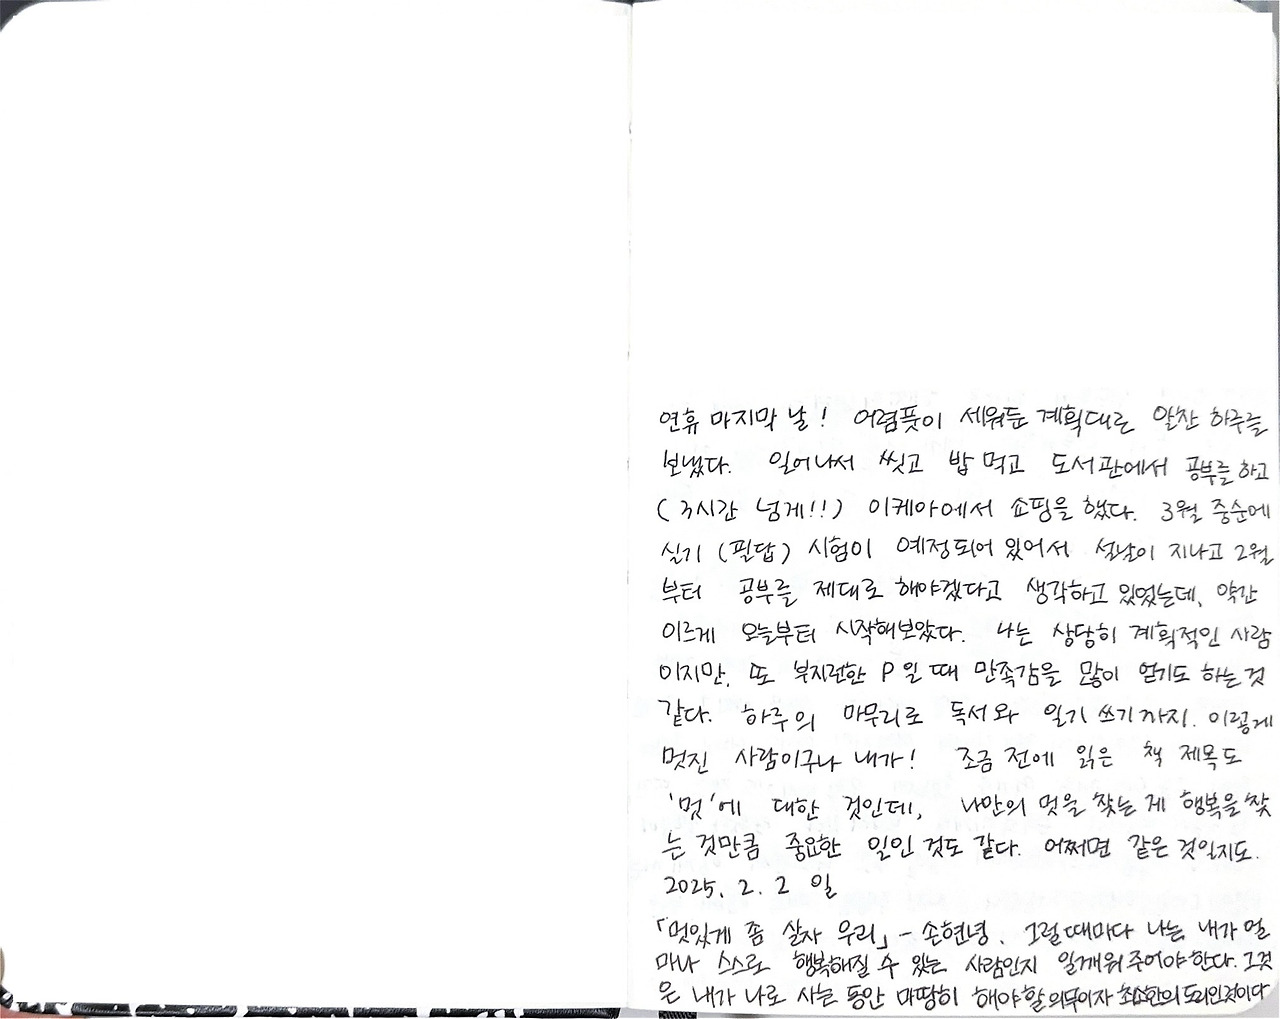 연휴 마지막 날! 어렴풋이 세워둔 계획대로 알찬 하루를
보냈다. 일어나서 씻고 밥 먹고 도서관에서 공부를 하고
(3시간 넘게!!) 이케아에서 쇼핑을 했다. 3월 중순에
실기 (필답) 시험이 예정되어 있어서 설날이 지나고 2월
부터 공부를 제대로 해야겠다고 생각하고 있었는데, 약간
이르게 오늘부터 시작해보았다. 나는 상당히 계획적인 사람
이지만, 또 부지런한 P일 때 만족감을 많이 얻기도 하는 것
같다. 하루의 마무리로 독서와 일기 쓰기까지. 이렇게
멋진 사람이구나 내가! 조금 전에 읽은 책 제목도
'멋'에 대한 것인데, 나만의 멋을 찾는 게 행복을 찾
는 것만큼 중요한 일인 것도 같다. 어쩌면 같은 것일지도.
2025. 2. 2 일
「멋있게 좀 살자 우리」 - 손현녕. 그럴 때마다 나는 내가 얼
마나 스스로 행복해질 수 있는 사람인지 일깨워 주어야 한다. 그것
은 내가 나로 사는 동안 마땅히 해야 할 의무이자 최소한의 도리인것이다